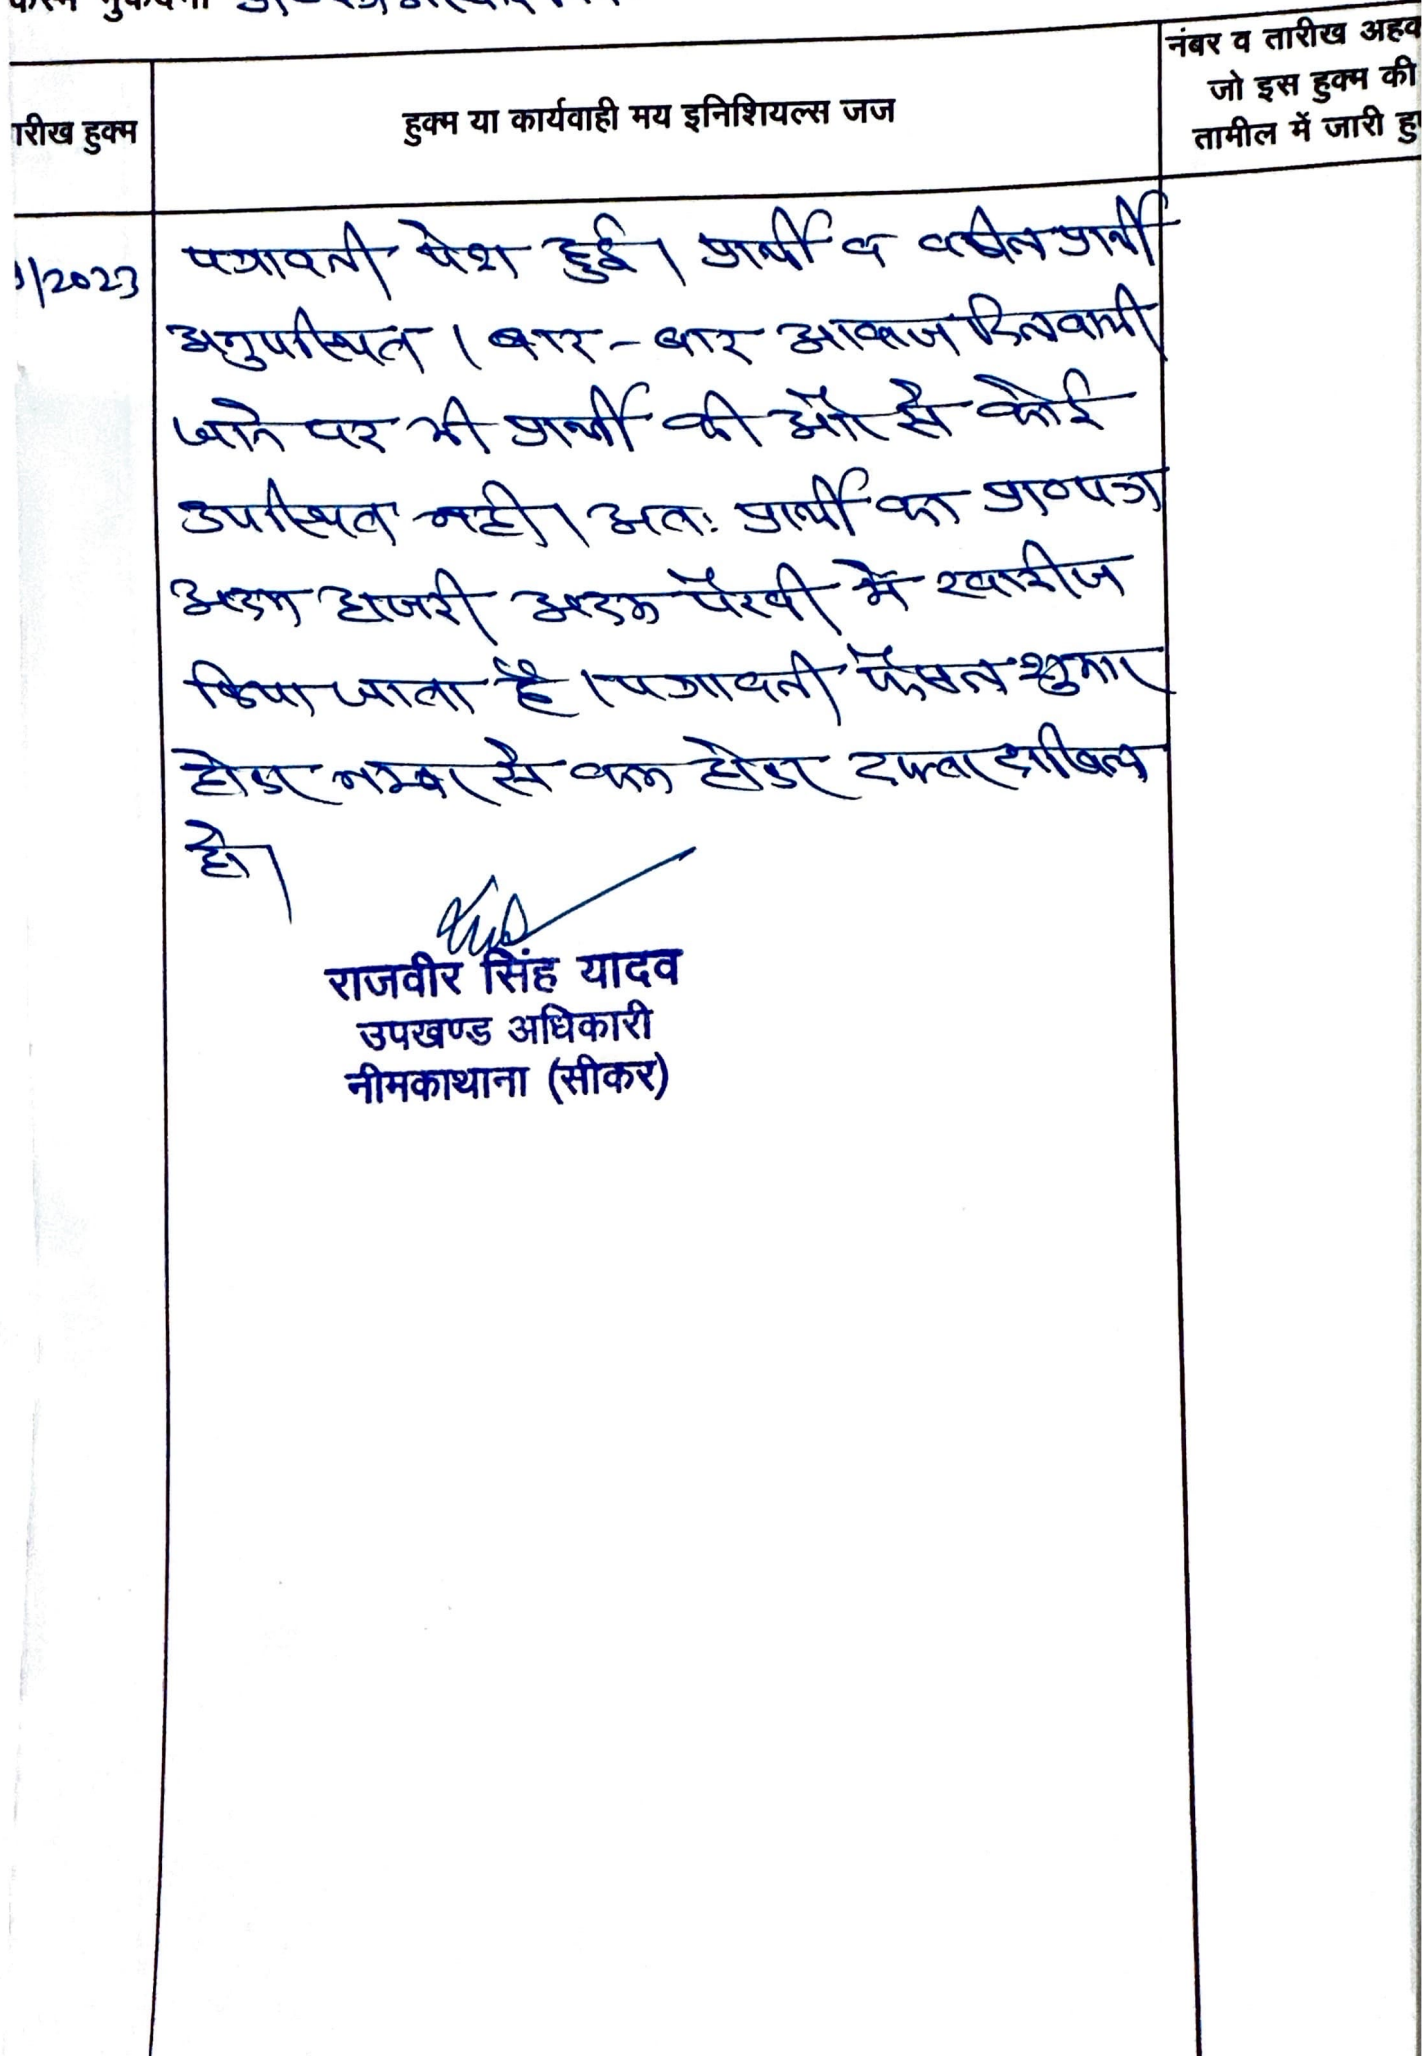 मुकदमा
तारीख हुक्म
हुक्म या कार्यवाही मय इनिशियल्स जज
नंबर व तारीख अहक
जो इस हुक्म की
तामील में जारी हु
/2023
पत्रावली पेश हुई। प्रार्थी व वकील प्रार्थी
अनुपस्थित। बार-बार आवाज दिलवायी
जाने पर भी प्रार्थी की ओर से कोई
उपस्थित नही। अतः प्रार्थी का प्रा०पत्र
अदम हाजरी अदम पैरवी में खारीज
किया जाता है। पत्रावली फैसल शुमार
होकर नम्बर से कम होकर दफ्तर दाखिल
हो।
राजवीर सिंह यादव
उपखण्ड अधिकारी
नीमकाथाना (सीकर)